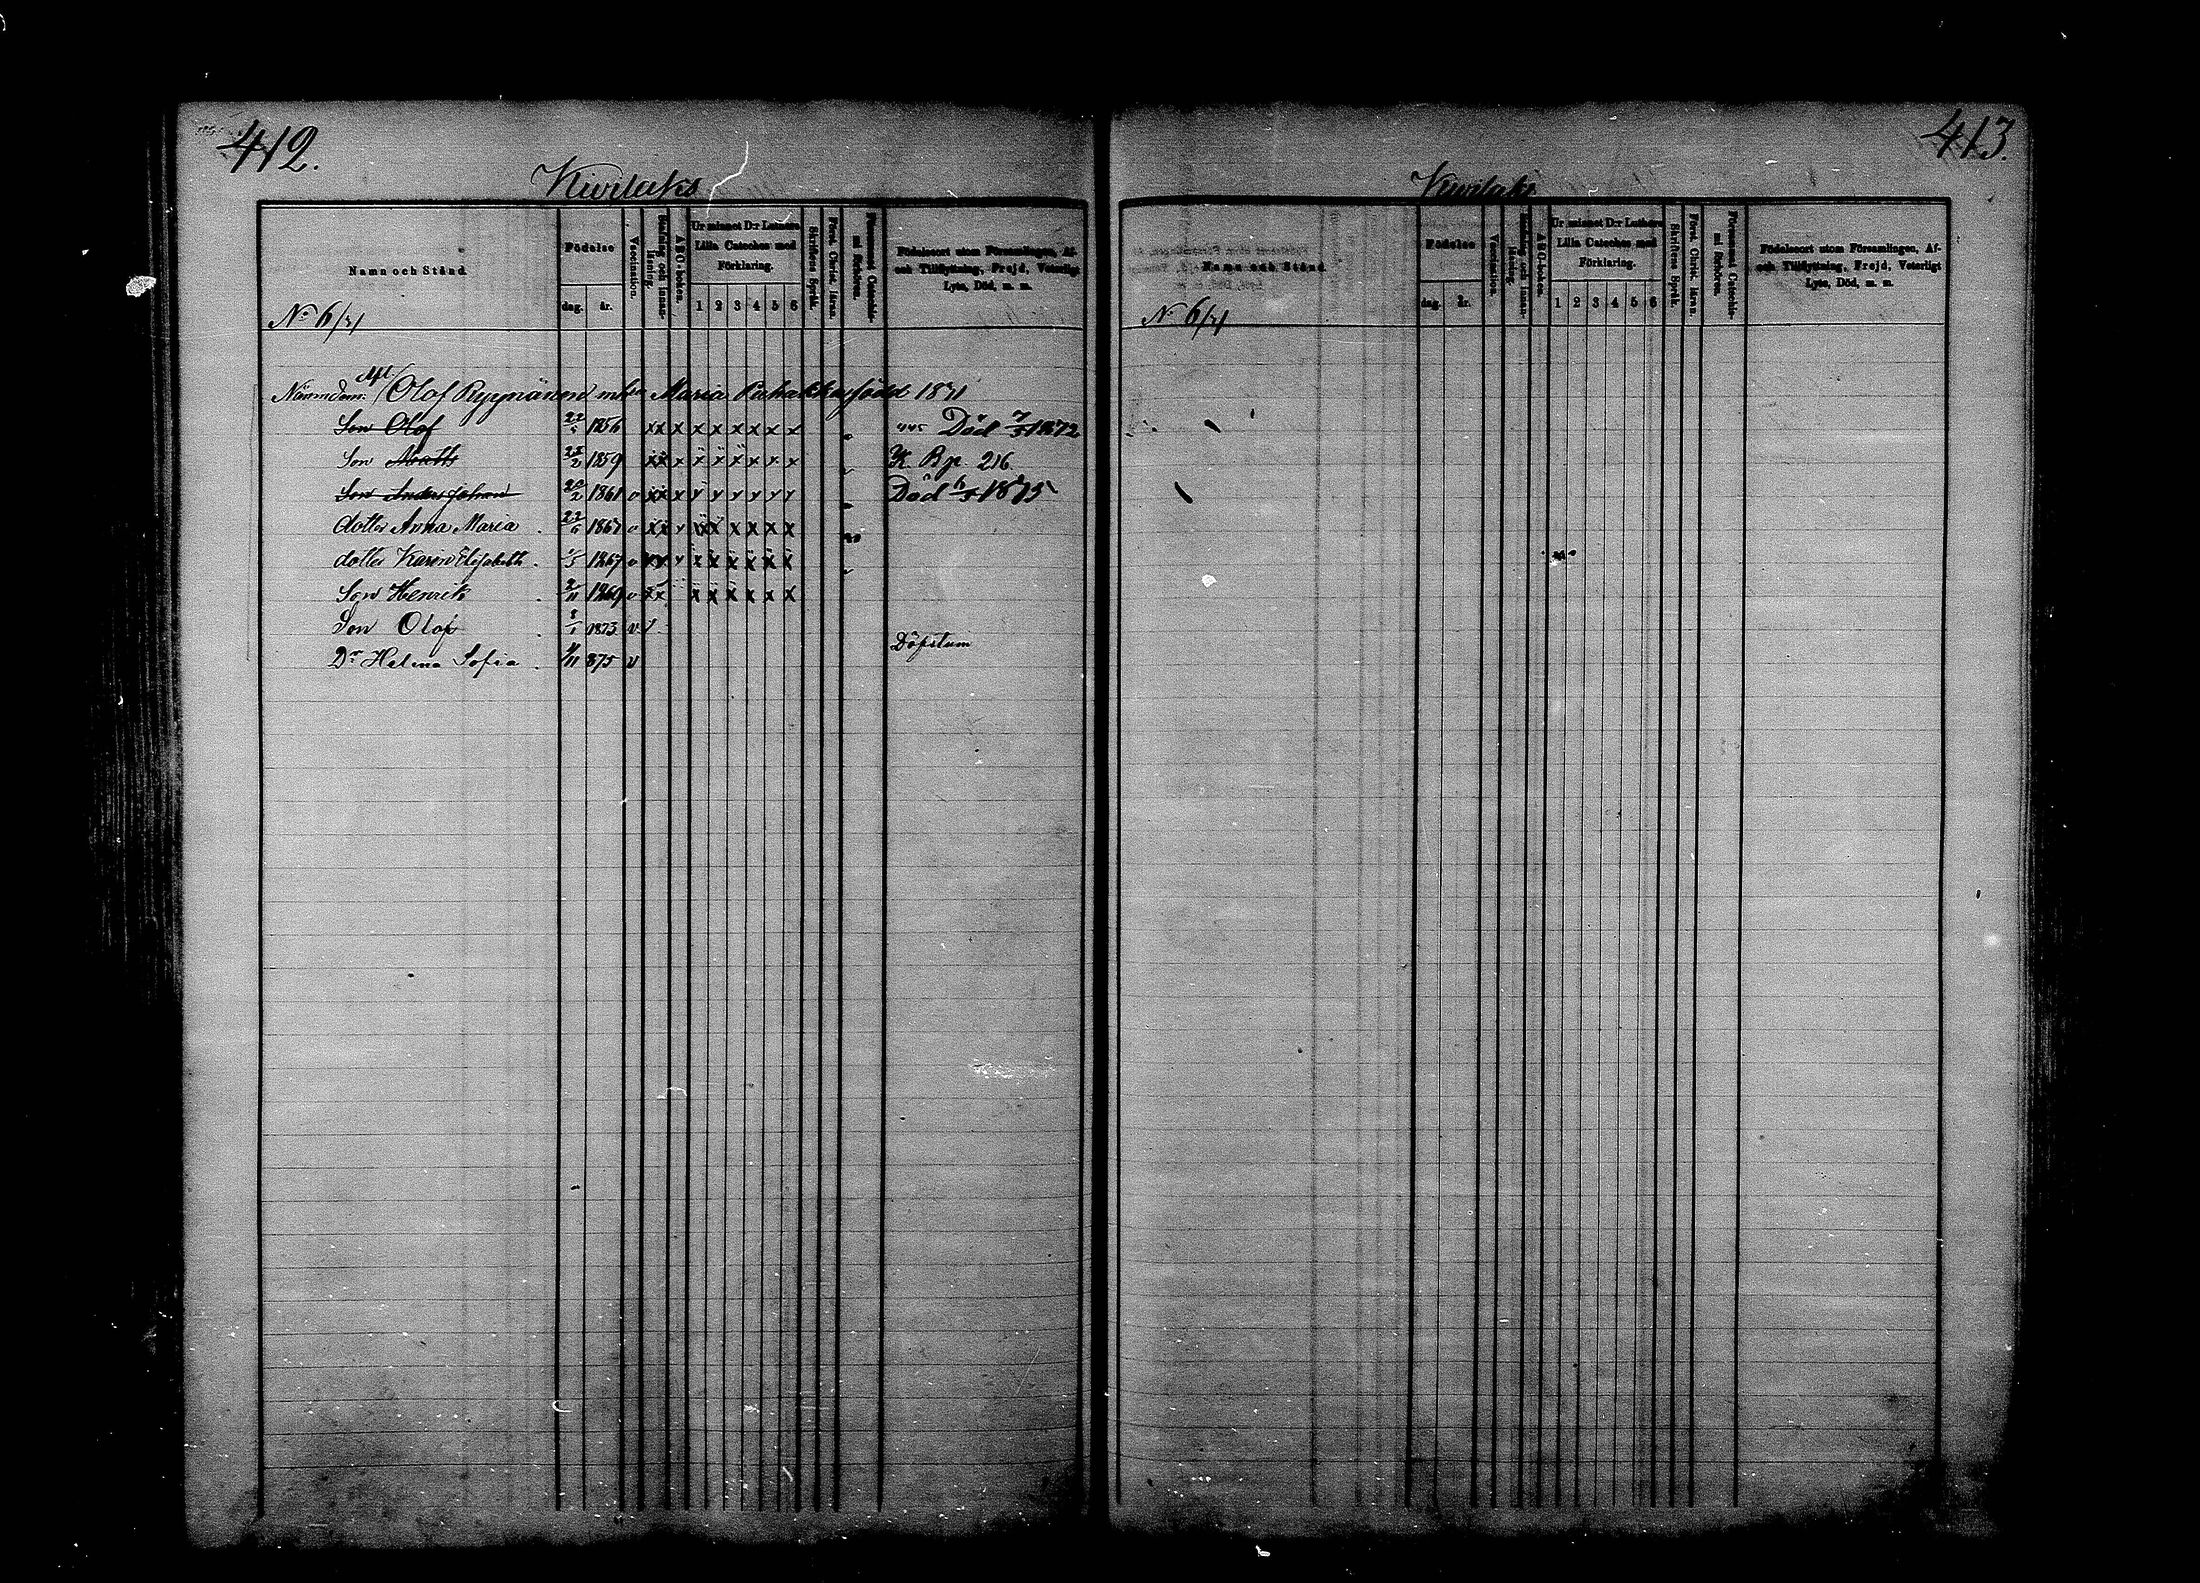 412.
Kivilaks
Namn och Stånd
Födelse
dag. år.
Vaccination.
Stafning och innan-läsning.
A B C-boken.
Ur minnet D:r Luthers
Lilla Cateches med
Förklaring.
1 2 3 4 5 6
Skriftens Språk.
Först. Christ. läran.
Försummat Catechis-
mi förhören.
Födelseort utom Församlingen, Af-
och Tillflyttning, Frejd, Veterligt
Lyte, Död, m. m.
No 6/71
Nämndem: Olof Ryynänen m hu Maria född 1831
Son Olof 1856 x x x x x x x x x Död 1872
Son Matts 1859 x x x x x x x x x K. B p. 216.
Son Anders Johan 20/2 1861 v x x x x x x x x x Död 1875
dotter Anna Maria 1867 v x x x x x x x x
dotter Karin Elisabeth 1867 v x x x x x x x x x
Son Henrik 1869 v x x x x x x x x
Son Olof 1873 v
Döpstum
Dr Helena Sofia 875 v
413.
Kivilaks
Namn och Stånd
Födelse
dag. år.
Vaccination.
Stafning och innan-läsning.
A B C-boken.
Ur minnet D:r Luthers
Lilla Cateches med
Förklaring.
1 2 3 4 5 6
Skriftens Språk.
Först. Christ. läran.
Försummat Catechis-
mi förhören.
Födelseort utom Församlingen, Af-
och Tillflyttning, Frejd, Veterligt
Lyte, Död, m. m.
No 6/71